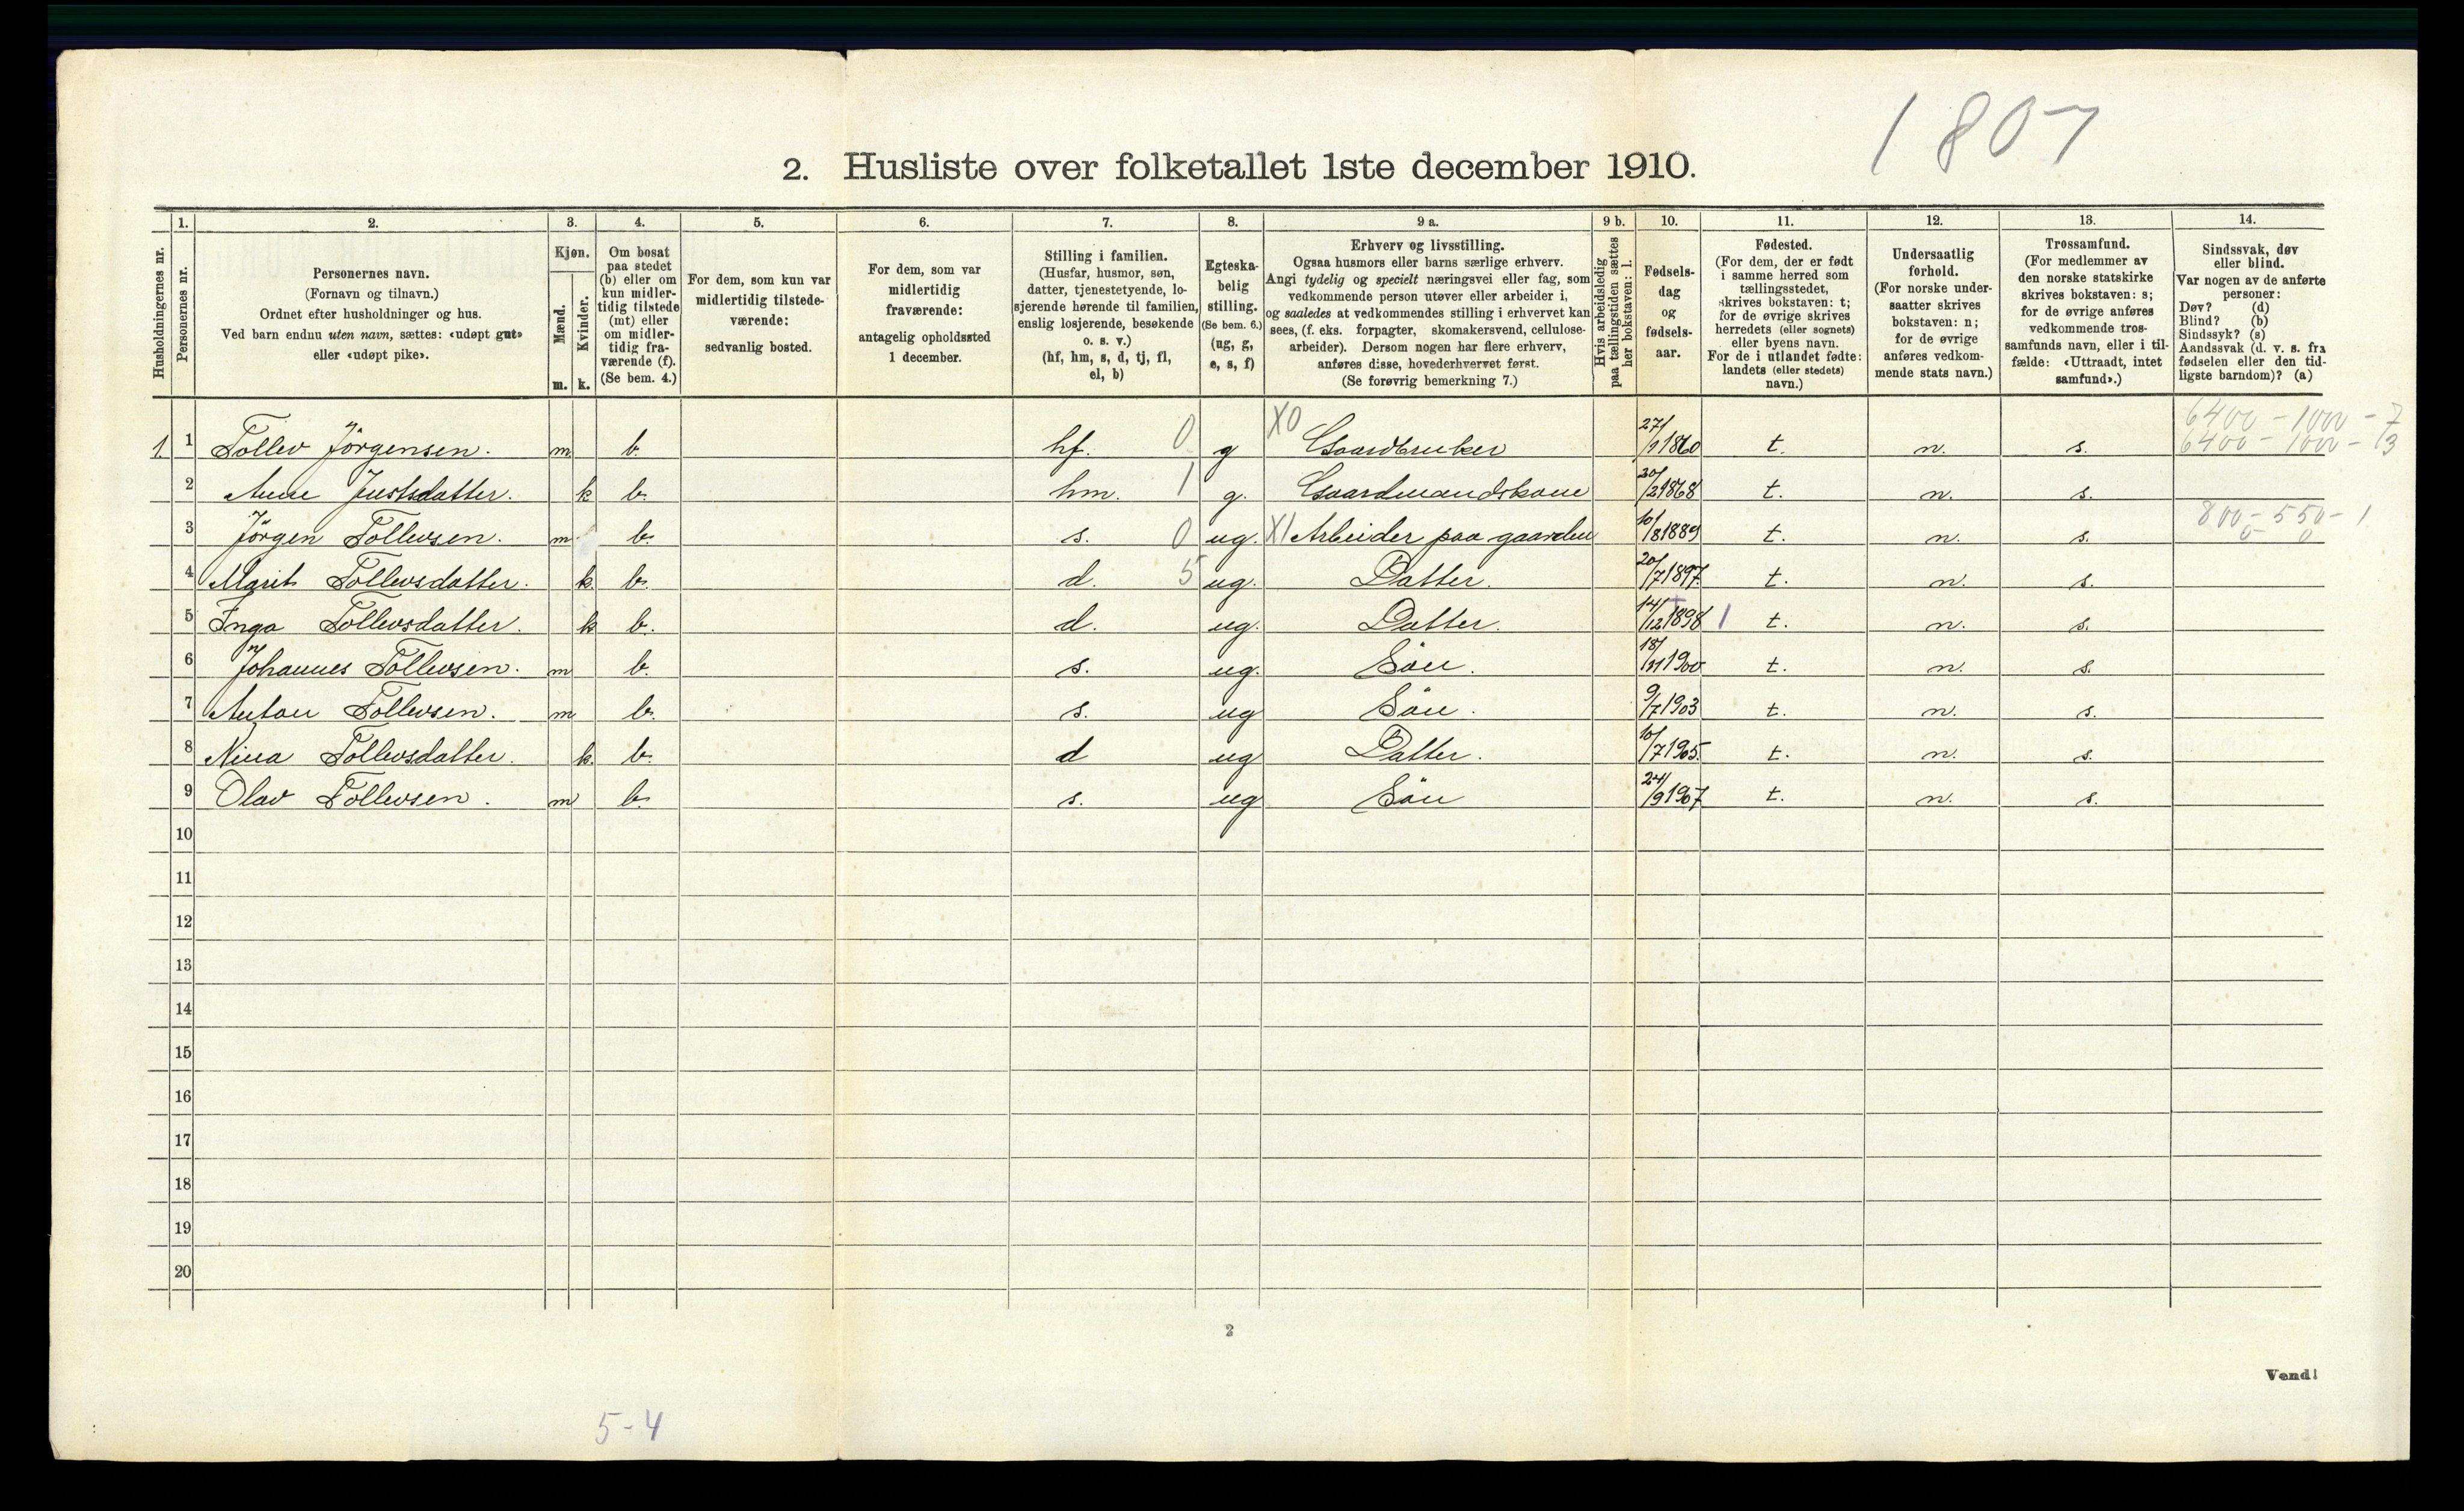 1807
2. Husliste over folketallet 1ste december 1910.
1. 2. 3. 4. 5. 6. 7. 8. 9 a. 9 b. 10. 11. 12. 13. 14.
Husholdningernes nr.
Personernes nr.
Personernes navn.
(Fornavn og tilnavn.)
Ordnet efter husholdninger og hus.
Ved barn endnu uten navn, sættes: «udøpt gut»
eller «udøpt pike».
Kjøn.
Mænd.
Kvinder.
m. k.
Om bosat
paa stedet
(b) eller om
kun midler-
tidig tilstede
(mt) eller
om midler-
tidig fra-
værende (f).
(Se bem. 4.)
For dem, som kun var
midlertidig tilstede-
værende:
sedvanlig bosted.
For dem, som var
midlertidig
fraværende:
antagelig opholdssted
1 december.
Stilling i familien.
(Husfar, husmor, søn,
datter, tjenestetyende, lo-
sjerende hørende til familien,
enslig losjerende, besøkende
o. s. v.)
(hf, hm, s, d, tj, fl,
el, b)
Egteska-
belig
stilling.
(Se bem. 6.)
(ug, g,
e, s, f)
Erhverv og livsstilling.
Ogsaa husmors eller barns særlige erhverv.
Angi tydelig og specielt næringsvei eller fag, som
vedkommende person utøver eller arbeider i,
og saaledes at vedkommendes stilling i erhvervet kan
sees, (f. eks. forpagter, skomakersvend, cellulose-
arbeider). Dersom nogen har flere erhverv,
anføres disse, hovederhvervet først.
(Se forøvrig bemerkning 7.)
Hvis arbeidsledig
paa tællingstiden sættes
her bokstaven: l.
Fødsels-
dag
og
fødsels-
aar.
Fødested.
(For dem, der er født
i samme herred som
tællingsstedet,
skrives bokstaven: t;
for de øvrige skrives
herredets (eller sognets)
eller byens navn.
For de i utlandet fødte:
landets (eller stedets)
navn.)
Undersaatlig
forhold.
(For norske under-
saatter skrives
bokstaven: n;
for de øvrige
anføres vedkom-
mende stats navn.)
Trossamfund.
(For medlemmer av
den norske statskirke
skrives bokstaven: s;
for de øvrige anføres
vedkommende tros-
samfunds navn, eller i til-
fælde: «Uttraadt, intet
samfund».)
Sindssvak, døv
eller blind.
Var nogen av de anførte
personer:
Døv? (d)
Blind? (b)
Sindssyk? (s)
Aandssvak (d. v. s. fra
fødselen eller den tid-
ligste barndom)? (a)
6400 - 1000 - 7
1. 1 Tollev Jörgensen. m. b. hf. 0 g X0 Gaardbruker 27/9 1860 t. n. s. 6400 - 1000 - 13
2 Anne Justsdatter. k b. hm. 1 g. Gaardmandskone 20/2 1868 t. n. s.
3 Jörgen Tollevsen. m b. s. 0 ug. X1 Arbeider paa gaarden 10/8 1889 t. n. s. 800 - 550 - 1
0 0
4 Marit Tollevsdatter. k. b. d. 5 ug. Datter. 20/7 1897. t. n. s.
5 Inga Tollevsdatter. k b. d. ug. Datter. 14/12 1898 1 t. n. s.
6 Johannes Tollevsen. m b. s. ug. Sön. 18/11 1900 t. n. s.
7 Anton Tollevsen. m b. s. ug Sön. 9/7 1903 t. n. s.
8 Nina Tollevsdatter. k. b. d ug Datter. 10/7 1905. t. n. s.
9 Olav Tollevsen. m b. s. ug Sön 24/9 1907 t. n. s.
10
11
12
13
14
15
16
17
18
19
20
2
Vend!
5-4